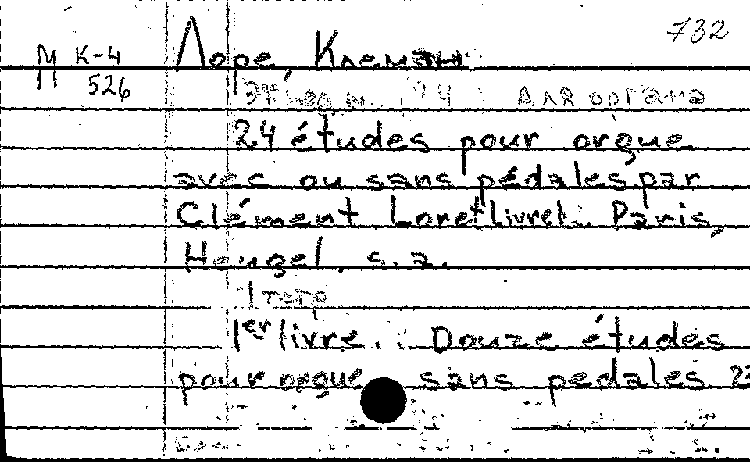 732
М К-4 Лоре, Клеман
526
24 для органа
24 études pour orgue
avec ou sans pédales par
Clément Loret livre1. Paris,
Heugel, s.a.
1 тетр
1er livre. Douze études
pour orgue sans pedales 23